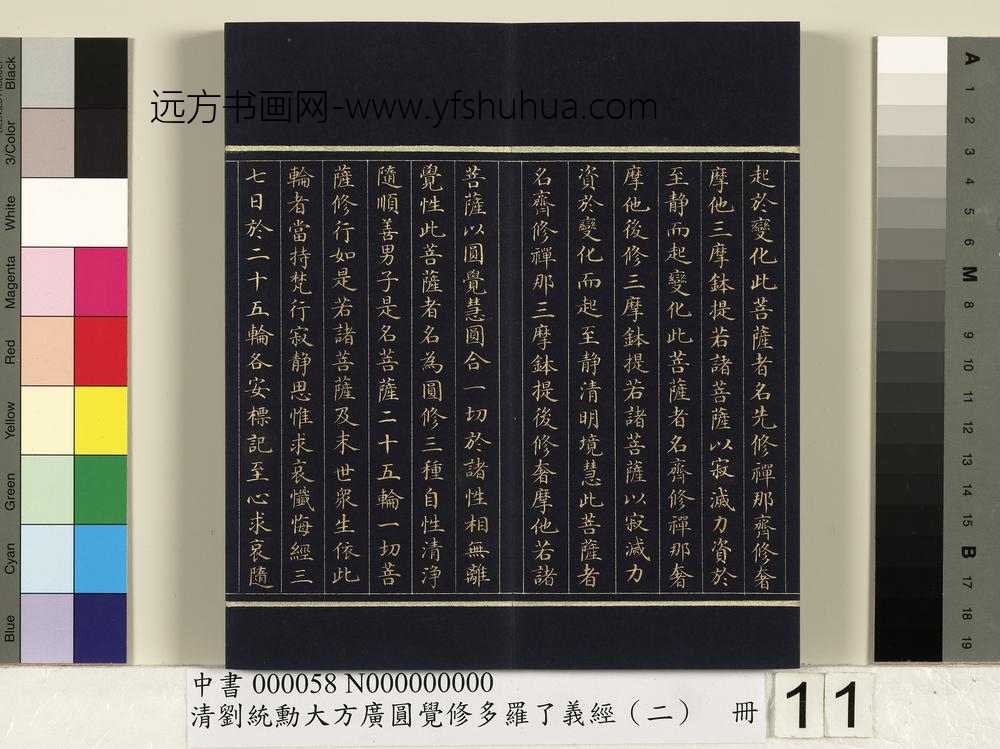 远方书画网-www.yfshuhua.com
起於變化此菩薩者名先修禪那齊修奢
摩他三摩鉢提若諸菩薩以寂滅力資於
至静而起變化此菩薩者名齊修禪那奢
摩他後修三摩鉢提若諸菩薩以寂滅力
資於變化而起至静清明境慧此菩薩者
名齊修禪那三摩鉢提後修奢摩他若諸
菩薩以圓覺慧圓合一切於諸性相無離
覺性此菩薩者名為圓修三種自性清淨
隨順善男子是名菩薩二十五輪一切菩
薩修行如是若諸菩薩及末世眾生依此
輪者當持梵行寂静思惟求哀懺悔經三
七日於二十五輪各安標記至心求哀隨
中書 000058 N000000000
清劉統勳大方廣圓覺修多羅了義經（二） 冊
11
Black
3/Color
White
Magenta
Red
Yellow
Green
Cyan
Blue
A
1
2
3
4
5
6
M
8
9
10
11
12
13
14
15
B
17
18
19